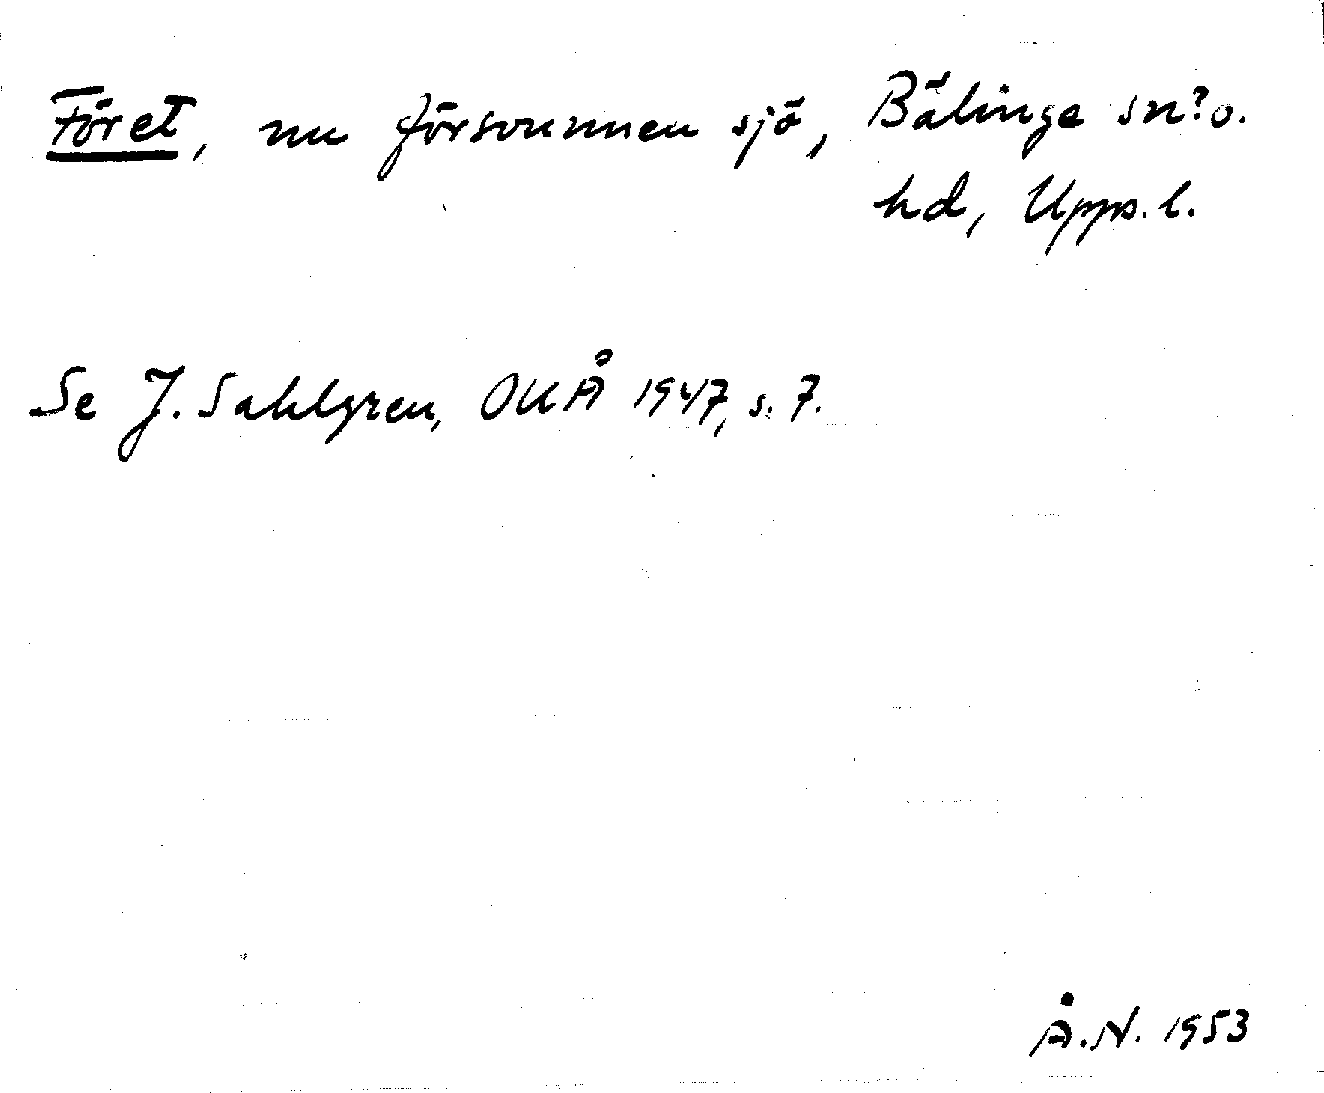 Föret, nu försvunnen sjö, Bälinge sn? o.
hd, Upps. l.
Se J. Sahlgren, OUÅ 1947, s. 7.
Å.N. 1953